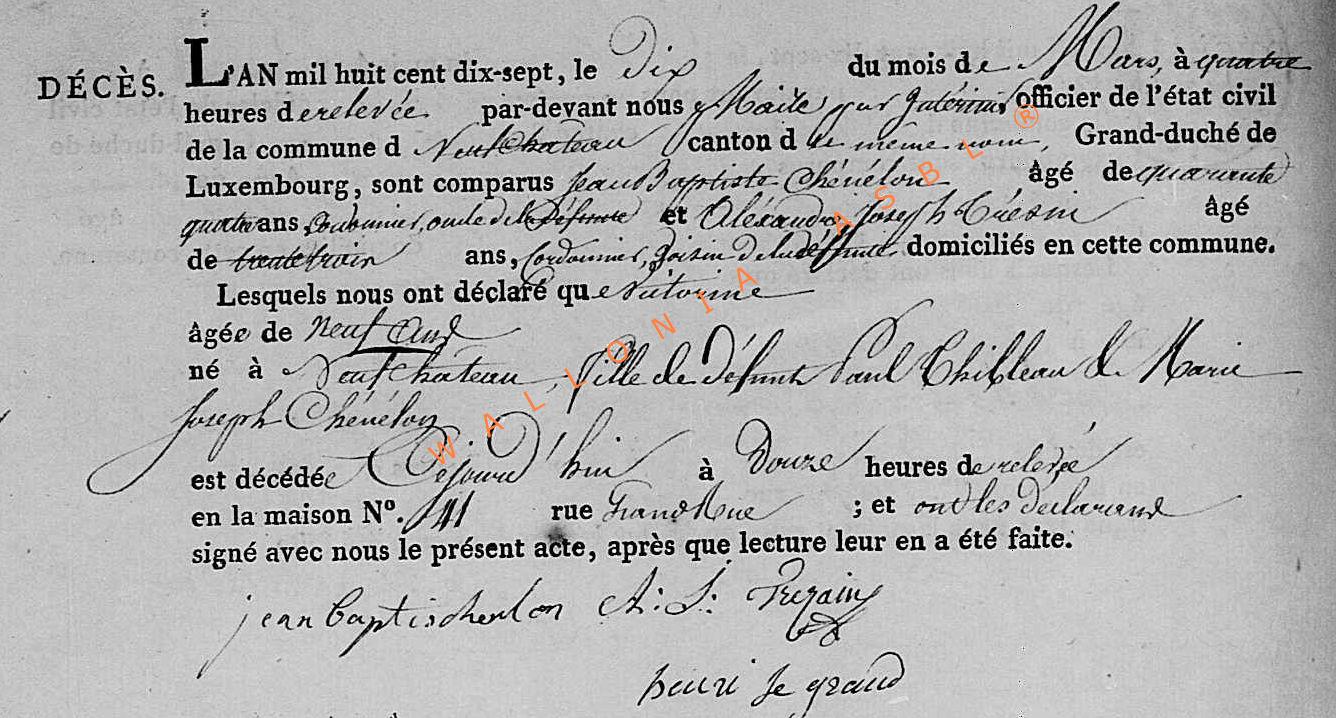 DÉCÈS. L'AN mil huit cent dix-sept, le Dix du mois de Mars, à quatre
heures de relevée par-devant nous Maire par intérim officier de l'état civil
de la commune d Neufchateau canton d de même nom, Grand-duché de
Luxembourg, sont comparus Jean Baptiste Chénélon âgé de quarante
quatre ans, Cordonnier, oncle de la Défunte et Aléxandre Joseph âgé
de trente trois ans, Cordonnier, Voisin de la défunte domiciliés en cette commune.
Lesquels nous ont déclaré que Victorine
âgée de Neuf Ans
né à Neufchâteau, fille de défunt Paul Thibleau & Marie
Joseph Chénélon
est décédée Cejourd'hui à Douze heures de relevée
en la maison N°. 141 rue Grand Rue ; et ont les déclarans
signé avec nous le présent acte, après que lecture leur en a été faite.
jean baptis chenlon A: J:
henri le grand
WALLONIA ASBL ®